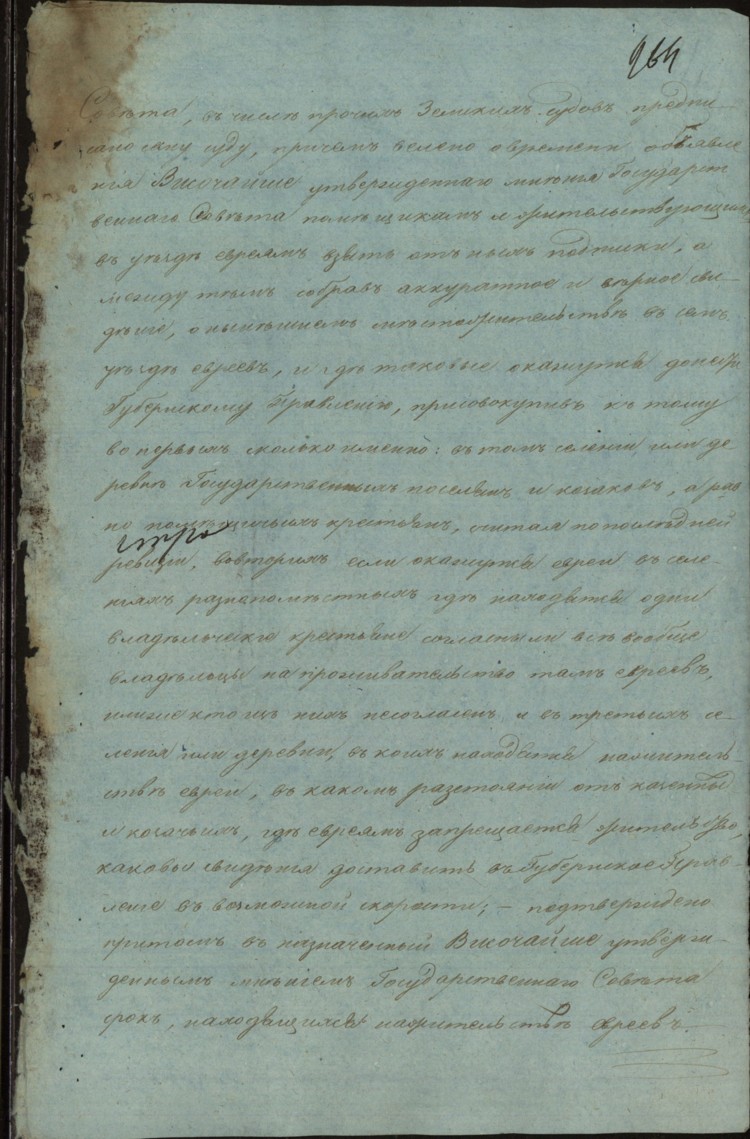 964
Совѣта, въ числѣ прочимъ Земскимъ судовъ предпи-
сано сему суду, причемъ велено о времени объявле
нія Височайше утвержденнаго мнѣнія Государст
веннаго Совѣта помѣщикамъ и жительствующимъ
въ уѣздѣ евреямъ взять отъ ныхъ подписки, а
между тѣмъ собравъ аккуратное и верное сви-
дѣніе, о нынѣшнемъ мѣстожительствѣ въ семъ
уѣздѣ евреевъ, и гдѣ таковые окажутся донесть
Губернскому Правленію, присовокупивъ къ тому
во первыхъ сколько именно: въ томъ селеніи или де-
ревнѣ Государственныхъ поселянъ и козаковъ, а рав
но помѣщичьихъ крестьянъ, считая по последней
ревизіи, вовторихъ если окажутся евреи въ селе-
ніяхъ разнопомѣстныхъ гдѣ находятся одни
владѣльческіе крестьяне согласныли всѣ вообще
владѣльцы на проживательство тамъ евреевъ,
илиже кто изъ нихъ несогласенъ и въ третьихъ се-
ленія или деревни, въ коихъ находятся нажитель-
ствѣ евреи, въ какомъ разстояніи отъ казенныхъ
и козачьихъ, гдѣ евреямъ запрещается жительство,
каковы свидѣнія доставить въ Губернское Прав-
леніе въ возможной скорости; – подтверждено
притомъ въ назначенный Височайше утверж-
деннымъ мнѣніемъ Государственнаго Совѣта
срокъ, находящихся нажительствѣ евреевъ